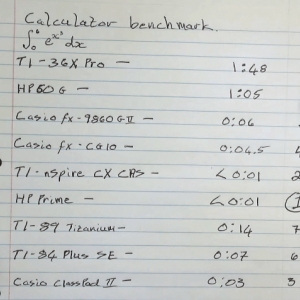 Calculator benchmark.
∫₀⁶ e^x³ dx
TI-36X Pro — 1:48
HP 60 G — 1:05
Casio fx-9860GII — 0:06
Casio fx-CG10 — 0:04.5
TI-nspire CX CAS — <0:01 2
HP Prime — <0:01
TI-89 Titanium — 0:14 7
TI-84 Plus SE — 0:07 6
Casio ClassPad II — 0:03 3